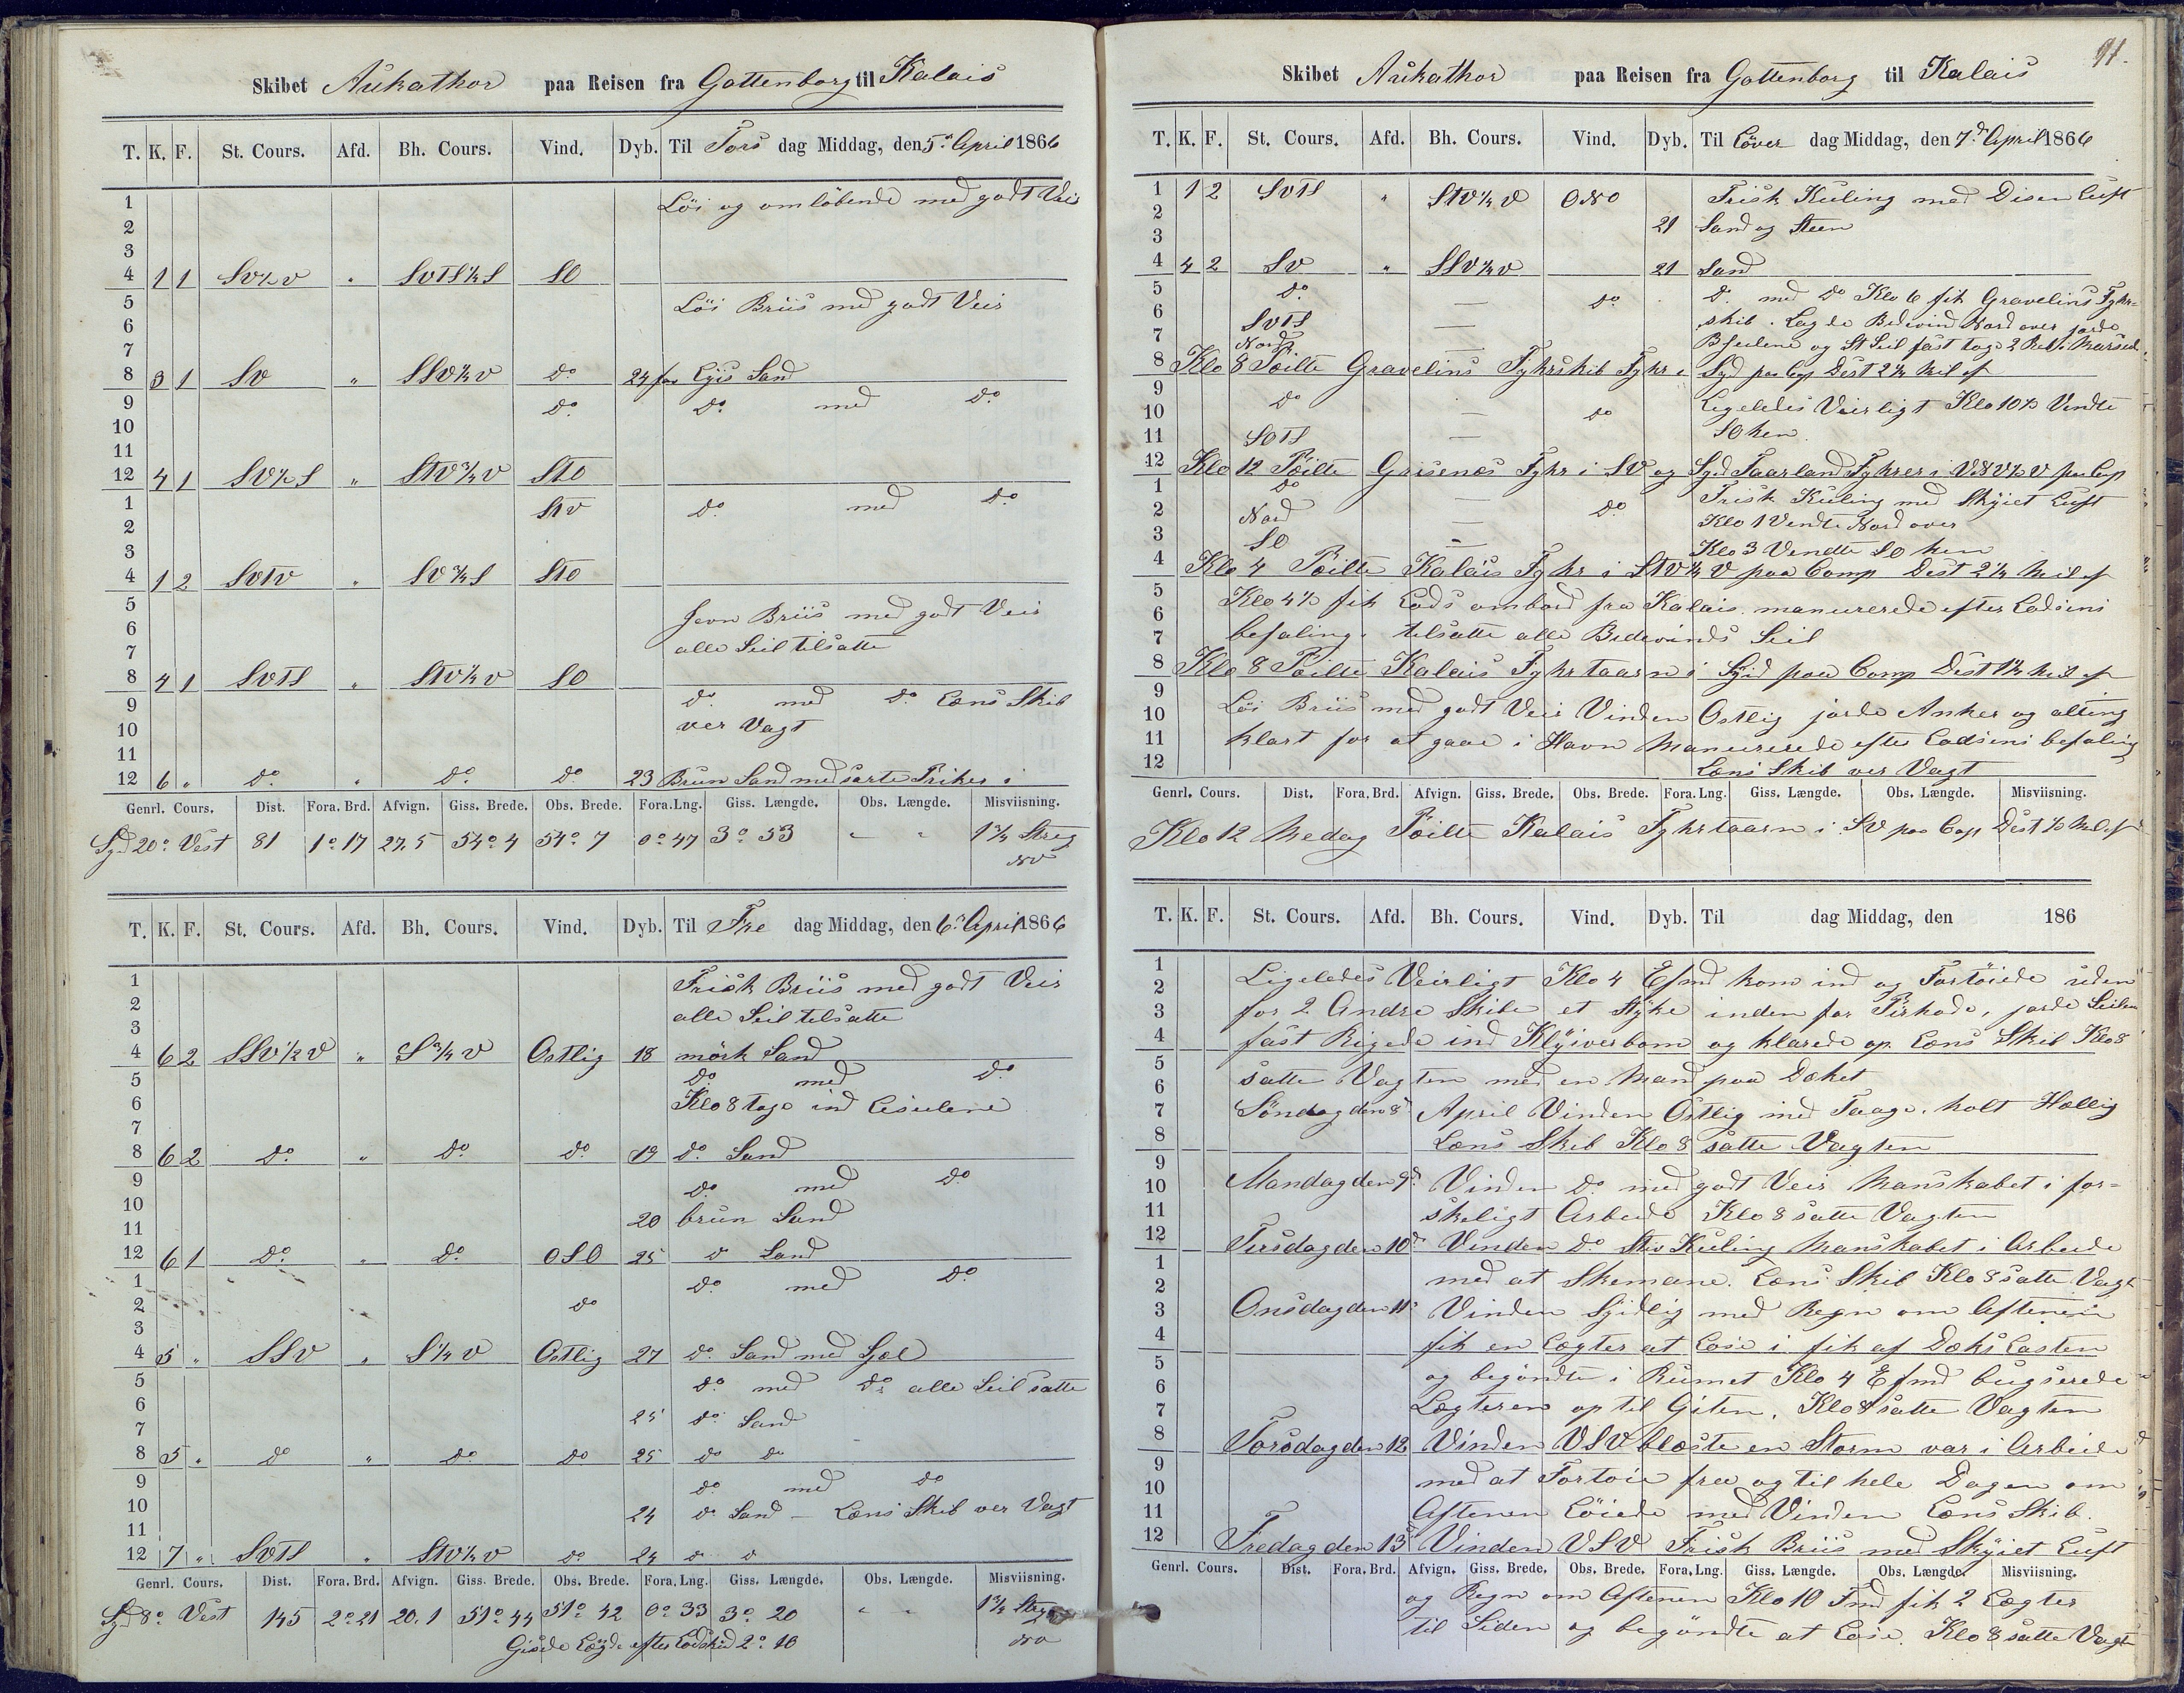 Skibet Aukathor paa Reisen fra Gottenborg til Kalais
T. K. F. St. Cours. Afd. Bh. Cours. Vind. Dyb. Til Tors dag Middag, den 5d April 1866
1 Löi og omlöbende med godt Veir
2
3
4 1 1 SV½V " SVTS¼S SO
5 Löi Briis med godt Veir
6
7
8 3 1 SV " SSV½V do 24 fav Lÿis Sand
9 do do med do
10
11
12 4 1 SV½S " STV¾V STO
1 STV do med do
2
3
4 1 2 SVTV " SV¾S STO
5 Jevn Briis med godt Veir
6 alle Seil tilsatte
7
8 4 1 SVTS " STV½V SO
9 do med do Læns Skib
10 ver Vagt
11
12 6 " do " do do 23 Brun Sand med sorte Priker i
Genrl. Cours. Dist. Fora. Brd. Afvign. Giss. Brede. Obs. Brede. Fora. Lng. Giss. Længde. Obs. Længde. Misviisning.
Syd 20° Vest 81 1° 17 27,5 54° 4 54° 7 0° 47 3° 53 " " 1¾ Streg
NV
T. K. F. St. Cours. Afd. Bh. Cours. Vind. Dyb. Til Fre dag Middag, den 6d April 1866
1 Frisk Briis med godt Veir
2 alle Seil tilsatte
3
4 6 2 SSV½V " S¾V Ostlig 18 mörk Sand
5 do med do
6 Klo 8 toge ind
7
8 6 2 do " do do 19 do Sand
9 do med do
10 20 brun Sand
11
12 6 1 do " do OSO 25 do Sand
1 do med do
2 do
3
4 5 " SSV " S¼V Ostlig 27 do Sand med Sjæl
5 do med do alle Seil satte
6 25 do Sand
7
8 5 " do " do do 25 do do
9 do med do
10 24 do Sand – Læns Skib ver Vagt
11
12 7 " SVTS " STV½V do 24 do do
Genrl. Cours. Dist. Fora. Brd. Afvign. Giss. Brede. Obs. Brede. Fora. Lng. Giss. Længde. Obs. Længde. Misviisning.
Syd 8° Vest 145 2° 21 20,1 51° 44 51° 42 0° 33 3° 20 " " 1¾ Streg
Gisede Længde efter Lodskud 2° 16 NV
91.
Skibet Aukathor paa Reisen fra Gottenborg til Kalais
T. K. F. St. Cours. Afd. Bh. Cours. Vind. Dyb. Til Löver dag Middag, den 7d April 1866
1 1 2 SVTS " STV¼V ONO Frisk Kuling med Disen Luft
2 21 Sand og Steen
3
4 4 2 SV " SSV¼V 21 Sand
5 do — do do med do Klo 6 fik Gravelins Fyhr=
6 SVTS — skib. Lagde Bidevind Nord over jorde
7 Nord og St Seil fast toge 2 Reb i Marsseil
8 Klo 8 Peilte Gravelins Fyhrskib Fyhr i Syd paa Cop Dist 2¼ Mil af
9 do — do Ligeledes Veirligt Klo 10½ Vendte
10 SO hen
11 SOTS —
12 Klo 12 Peilte Grisenes Fyhr i SV og Syd Faarland Fyhrer i VNV½V paa Cop
1 do — do Frisk Kuling med Skÿiet Luft
2 Nord — Klo 1 Vendte Nord over
3 SO — Klo 3 Vendte SO hen
4 Klo 4 Peilte Kalais Fyhr i STV¼V paa Comp Dist 2¼ Mil af
5 Klo 4½ fik Lods ombord fra Kalais manurerede efter Lodsens
6 befaling. tilsatte alle Bidevinds Seil
7
8 Klo 8 Peilte Kalais Fyhrtaarn i Syd paa Comp Dist 1¼ Mil af
9 Löi Briis med godt Veir Vinden Ostlig jorde Anker og alting
10 klart for at gaae i Havn Manurerede efter Lodsens befaling
11
12 Læns Skib ver Vagt
Genrl. Cours. Dist. Fora. Brd. Afvign. Giss. Brede. Obs. Brede. Fora. Lng. Giss. Længde. Obs. Længde. Misviisning.
Klo 12 Medag Peilte Kalais Fyhrtaarn i SV paa Cop Dist ½ Mil af
T. K. F. St. Cours. Afd. Bh. Cours. Vind. Dyb. Til dag Middag, den 186
1 Ligeledes Veirligt Klo 4 Efmd kom ind og Fortöiede uden
2 for 2 Andre Skibe et Stÿke inden for Pirhode, jorde Seilene
3
4 fast Rigede ind Klÿiverbom og klarede op Læns Skib Klo 8
5 satte Vagten med en Mand paa Dæket
6
7 Söndag den 8d April Vinden Ostlig med Taage. holt Hellig
8 Læns Skib Klo 8 satte Vagten
9 Mandag den 9d Vinden do med godt Veir Manskabet i for=
10
11 skeligt Arbeide Klo 8 satte Vagten
12 Tirsdag den 10d Vinden do Stiv Kuling Manskabet i Arbeide
1 med at Skemane. Læns Skib Klo 8 satte Vagt
2
3 Onsdag den 11d Vinden Sÿdlig med Regn om Aftenen
4 fik en Lægter at Lose i fik af Dæks Lasten
5 og begöndte i Rumet Klo 4 Efmd bugserede
6
7 Lægteren op til Giten. Klo 8 satte Vagten
8 Torsdag den 12 Vinden VSV blæste en Storm var i Arbeide
9 med at Fortöie fra og til hele Dagen om
10
11 Aftenen Löiede med Vinden Læns Skib.
12 Fredag den 13d Vinden VSV Frisk Briis med Skÿiet Luft
Genrl. Cours. Dist. Fora. Brd. Afvign. Giss. Brede. Obs. Brede. Fora. Lng. Giss. Længde. Obs. Længde. Misviisning.
og Regn om Aftenen Klo 10 Fmd fik 2 Lægter
til Siden og begöndte at Lose. Klo 8 satte Vagt